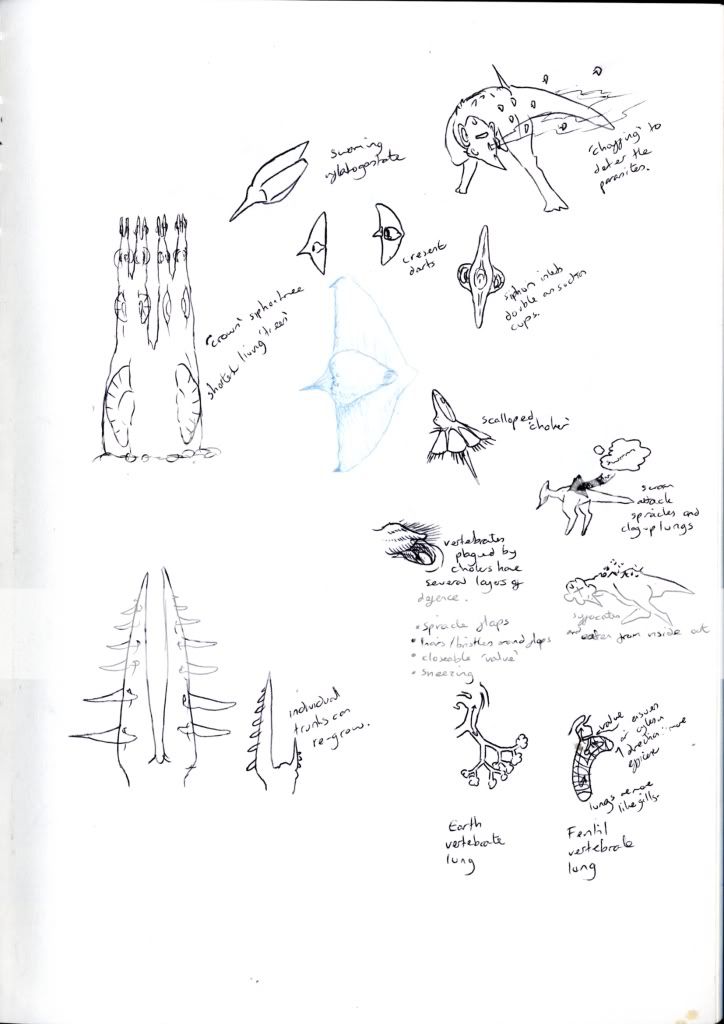 swarming
xylotogastrate
'chopping' to
deter the
parasites.
cresent
darts
siphon inlets
double as suction
cups.
'crown' siphontree
shortest living 'trees'
scalloped 'choker'
swarm
attack
spiracles and
clog-up lungs
vertebrates
plagued by
chokers have
several layers of
defence.
• spiracle flaps
• hairs/bristles around flaps
• closeable 'valve'
• sneezing
suffocates
and eaten from inside out
individual
trunks can
re-grow.
valve ensures
air cycles in
1 direction: more
efficient
lungs are more
like gills.
Earth
vertebrate
lung
vertebrate
lung